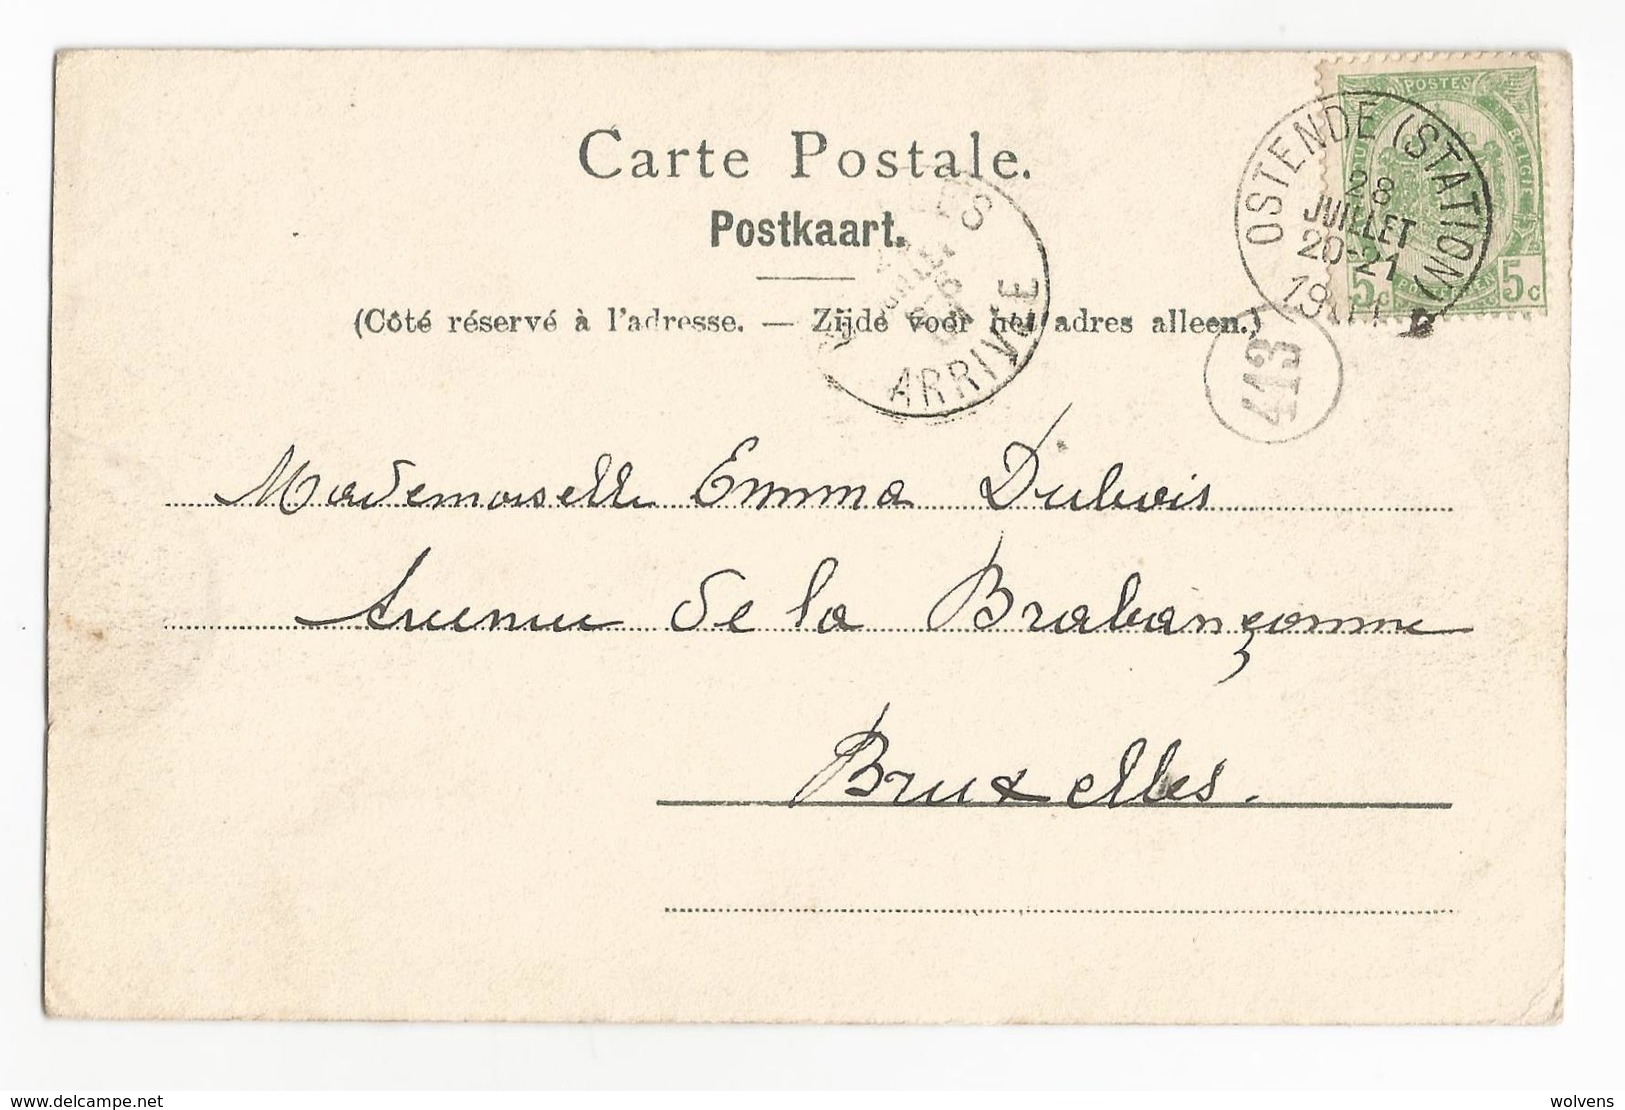 Carte Postale.
Postkaart.
(Côté réservé à l'adresse. — Zijde voor het adres alleen.)
POSTES
BELGIE
5c
5c
OSTENDE (STATION)
28
JUILLET
20-21
ARRIVÉE
413
Mademoiselle Emma Dubois
Avenue de la Brabançonne
Bruxelles.
www.delcampe.net
wolvens